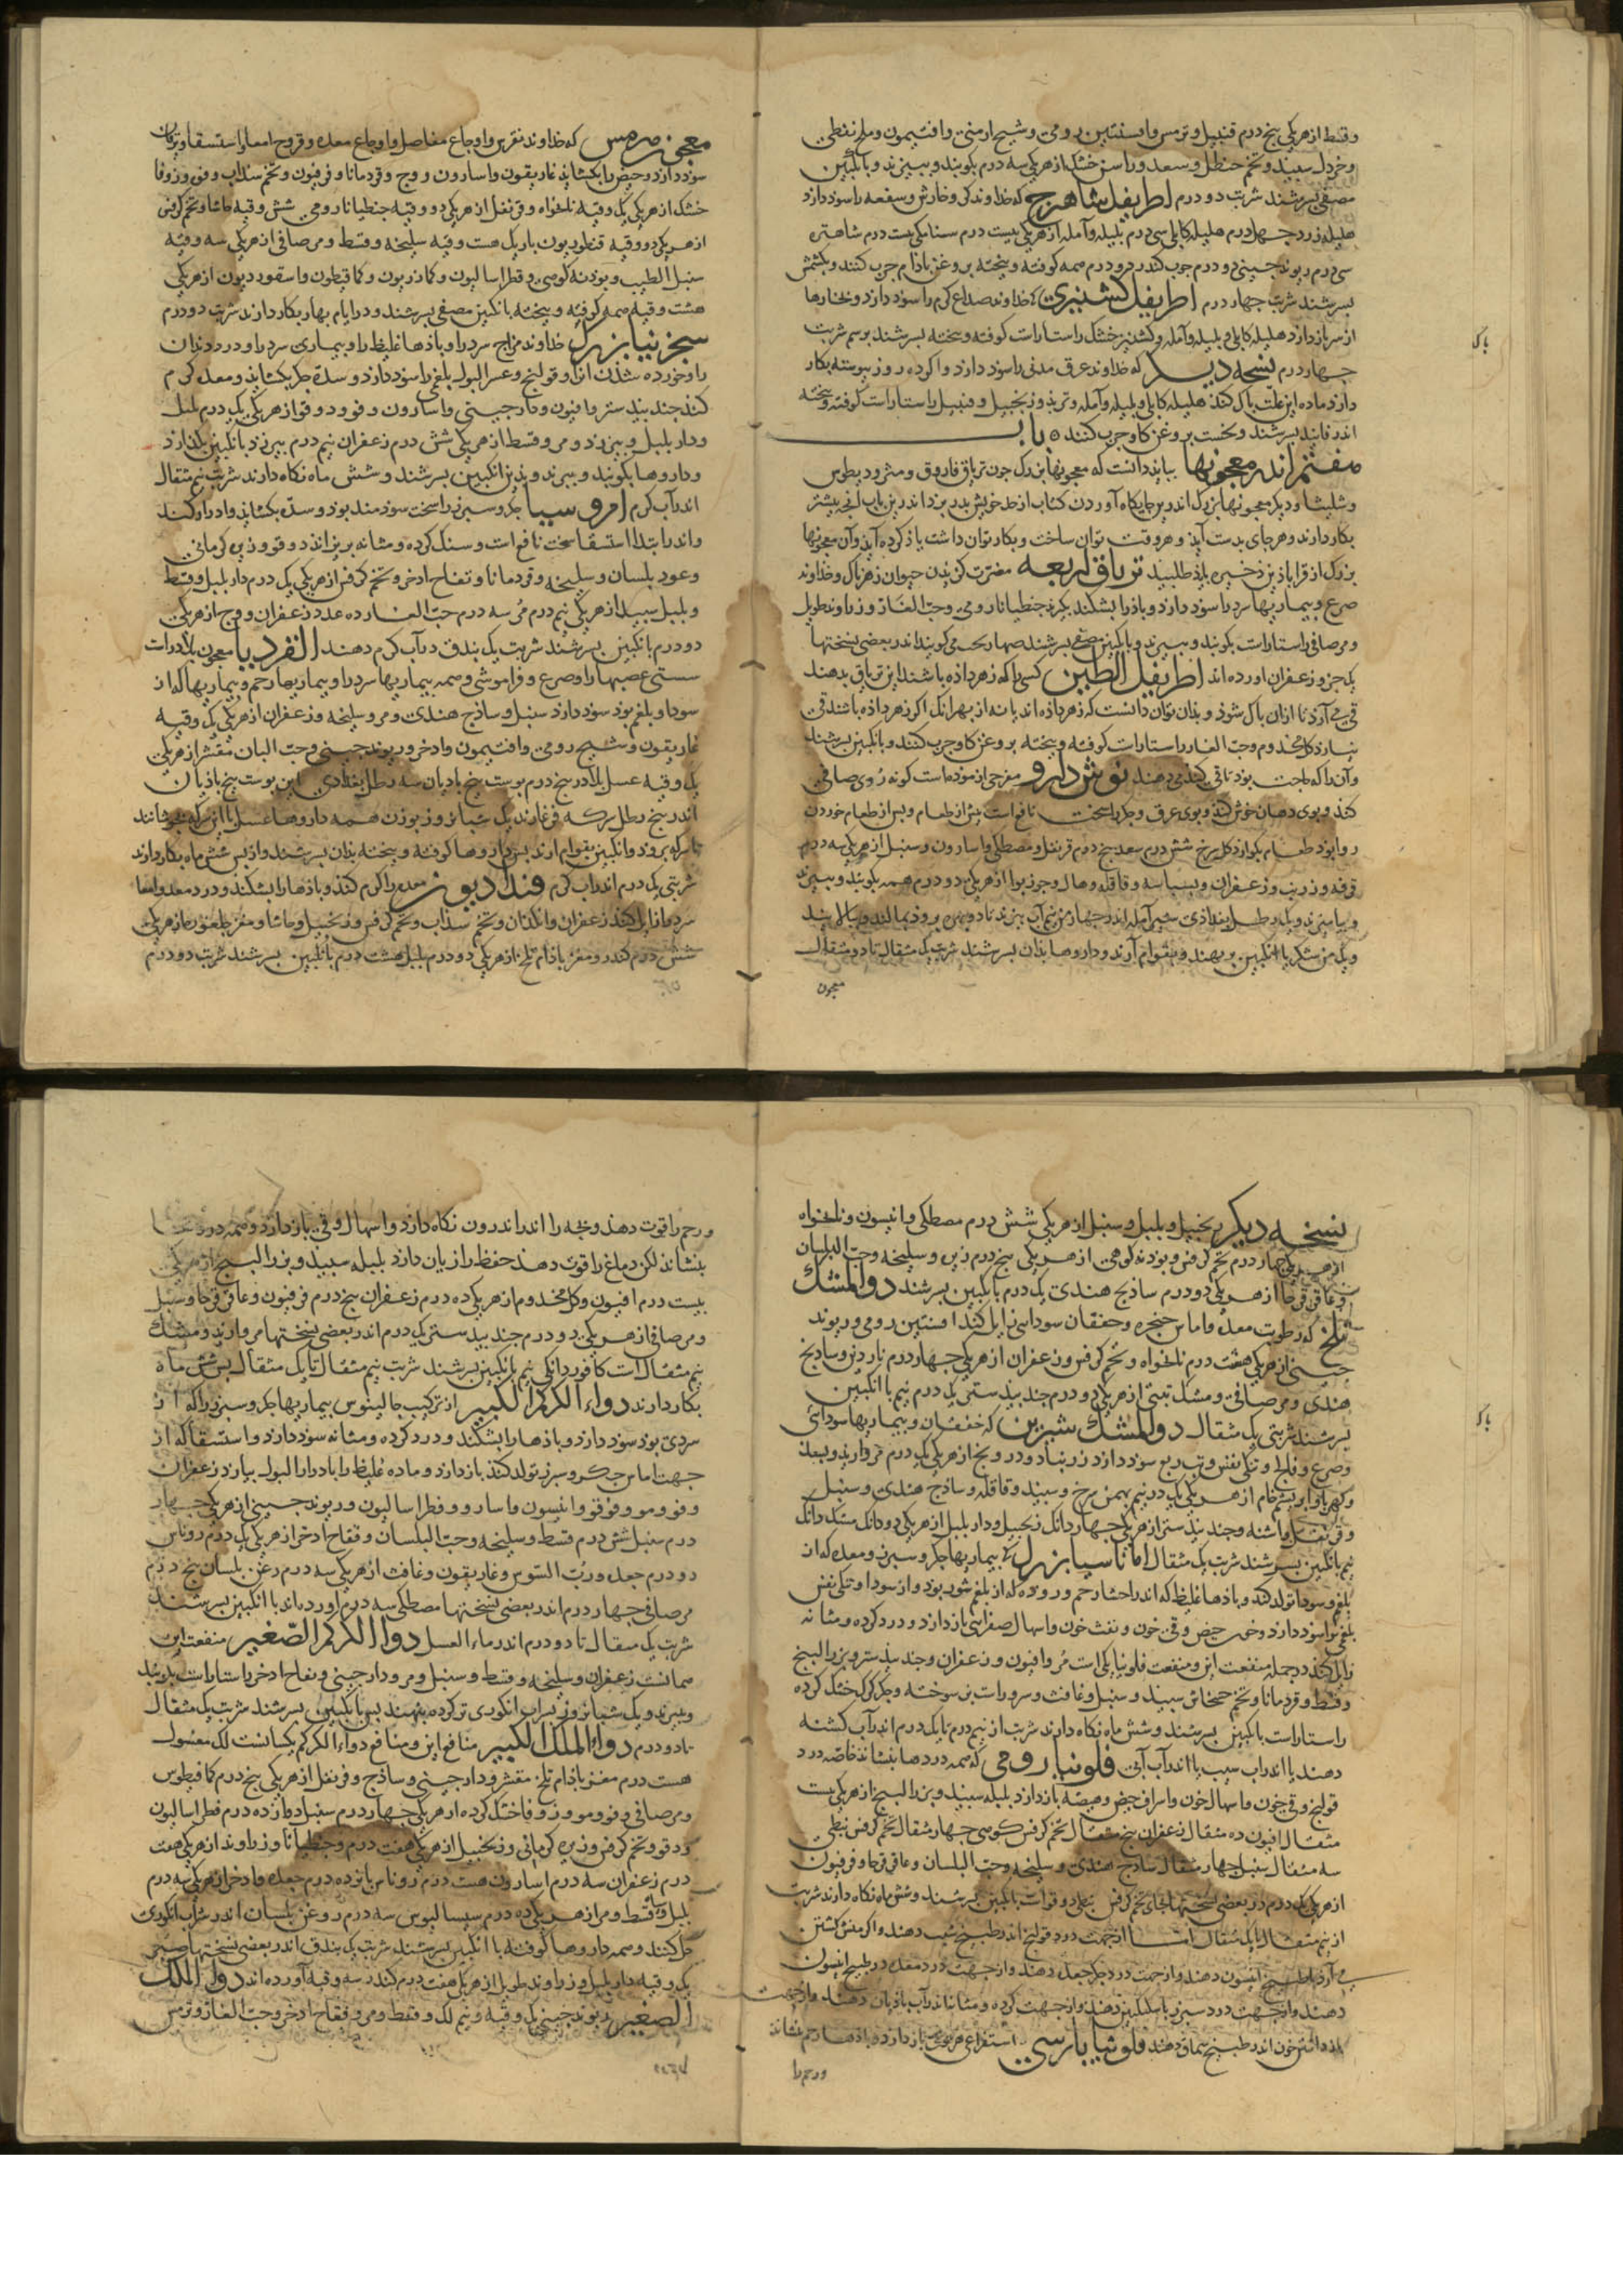 وقسط ازهریکی پنج درم قنبیل وترمس وافسنتین رومی وشیح ارمنی وافتیمون وملح نفطی
وخردل سپید وتخم حنظل وسعد وراسن خشک ازهریکی سه درم بکوبند وببیزند وبانگبین
مصفی بسرشند شربت دو درم اطریفل شاهترج که خداوند کر وخارش وسعفه را سوذ دارذ
هلیله زرد چهل درم هلیله کابلی سی درم بلیله وآمله ازهریکی بیست درم سنا مکی بیست درم شاهتره
سی درم ریوند چینی دو درم همه کوفته وبیخته بروغن باذام چرب کنند وبکشمش
بسرشند شربت چهار درم اطریفل کشنیزی خداوند صداع کرم را سوذ دارذ وبخارها
از سر باز دارذ هلیله کابلی وبلیله وآمله وکشنیز خشک راستاراست کوفته وبیخته بسرشند برسم شربت
چهار درم نسخه دیگر که خداوند عرق مدنی را سوذ دارذ واکر ده روز پیوسته بکار
دارذ ماده این علت پاک کند هلیله کابلی وبلیله وآمله وتربذ وزنجبیل راستاراست کوفته وبیخته
اندر فانید بسرشند ونخست بروغن کاو چرب کنند باب
هفتم اندر معجونها بباید دانست که معجونها بزرک چون تریاق فاروق ومثرودیطوس
وشلیثا ودیگر معجونها بزرک اندرین جایکاه آوردن کتاب از حد خویش بدر برد اندرین باب آنچه بیشتر
بکار دارند وهرجای بدست آید وهروقت توان ساخت وبکار توان داشت یاذ کرده آید وآن معجونها
بزرک از قراباذین ذخیره باید طلبید تریاق اربعه مضرت کزیدن حیوان زهرناک وخداوند
صرع وبیماریها سرد را سوذ دارذ وباذ را بشکند بکیرند جنطیانا رومی وحب الغار وزراوند طویل
ومر صافی راستاراست بکوبند وببیزند وبانگبین مصفی بسرشند اندر بعضی نسختها
یک جزو زعفران آورده اند اطریفل الطین کسی را که زهر داذه باشند این تریاق بدهند
قی می آرذ تا ازان پاک شوذ وبذان توان دانست که زهر داذه اند یا نه از بهر آنک اکر زهر داذه باشند قی
نیارد کل مختوم وحب الغار راستاراست کوفته وبیخته بروغن کاو چرب کنند وبانگبین بسرشند
نوش دارو مفرحی ازموده است کونه روی صافی
کند وبوی دهان خوش کند وبوی عرق وجکر را سخت نافع است پیش از طعام وپس از طعام خوردن
روا بوذ طعام بکوارذ کل سرخ شش درم سعد پنج درم قرنفل ومصطکی واسارون وسنبل ازهریکی سه درم
قرفه وزرنب وزعفران وبسباسه وقاقله وهال وجوزبوا ازهریکی دو درم همه بکوبند وببیزند
وبیامیزند ویک رطل بغداذی شیر آمله اندر چهار من آب بپزند تا دو من بروذ بمالند وبپالایند
ویک من شکر با انگبین برنهند وبقوام آرند وداروها بذان بسرشند شربت یک مثقال تا دو مثقال
معجون
معجون هرمس که خداوند نقرس واوجاع مفاصل واوجاع معده وقروح امعا واستسقا ویرقان
سوذ دارذ وحیض را بکشاید غاریقون واسارون ووج وقردمانا وفرفیون وتخم سذاب وفو وزوفا
خشک ازهریکی یک وقیه نانخواه وقرنفل ازهریکی دو وقیه جنطیانا رومی شش وقیه حاشا وتخم کرفس
ازهریکی دو وقیه قنطوریون باریک هشت وقیه سلیخه وقسط ومر صافی ازهریکی سه وقیه
سنبل الطیب وپوذنه کوهی وفطراسالیون وکماذریون وکمافیطون واسقوردیون ازهریکی
هشت وقیه همه کوفته وبیخته بانگبین مصفی بسرشند ودر ایام بهار بکار دارند شربت دو درم
سجزنیا بزرک خداوند مزاج سرد را وباذها غلیظ را وبیماری سرد را ودرد دندان
را وخورده شدن آنرا وقولنج وعسر البول بلغمی را سوذ دارذ وسده جکر بکشاید ومعده کرم
کند جند بیدستر وافیون ودارچینی واسارون وفو ودوقو ازهریکی یک درم پلپل
ودارپلپل وبیرزد ومر وقسط ازهریکی شش درم زعفران نیم درم بیرزد بانگبین بکدازد
وداروها بکوبند وببیزند وبذین انگبین بسرشند وشش ماه نکاه دارند شربت نیم مثقال
اندر آب کرم امروسیا جکر وسپرز را سخت سوذمند بوذ وسده بکشاید وادرار کند
واندر ابتدا استسقا سخت نافع است وسنک کرده ومثانه بریزاند دوقو وزیره کرمانی
وعود بلسان وسلیخه وقردمانا وفقاح اذخر وتخم کرفس ازهریکی یک درم دارپلپل وقسط
وپلپل سپید ازهریکی نیم درم مر سه درم حب الغار ده عدد زعفران ووج ازهریکی
دو درم بانگبین بسرشند شربت یک بندق در آب کرم دهند انقردیا معجون بلاذراست
سستی عصبها را وصرع وفراموشی وهمه بیماریها سرد را وبیماریها رحم وبیماریها که از
سودا وبلغم بوذ سوذ دارذ سنبل وساذج هندی ومر وسلیخه وزعفران ازهریکی یک وقیه
غاریقون وشیح رومی وافتیمون واذخر وریوند چینی وحب البان مقشر ازهریکی
یک وقیه عسل بلاذر پنج درم پوست بیخ باذیان سه رطل بغدادی این پوست بیخ باذیان
اندر پنج رطل سرکه فرغارند یک شبانروز بوذن همه داروها عسل با این سرکه بجوشانند
تا سرکه بروذ وانگبین بقوام آرند پس داروها کوفته وبیخته بذان بسرشند واز پس شش ماه بکار دارند
شربتی یک درم اندر آب کرم فندادیقون معده را کرم کند وباذها را بشکند ودرد معده وامعا
سرد را زایل کند زعفران وانکدان وتخم سذاب وتخم کرفس وزنجبیل وحاشا ومغز جلغوزه ازهریکی
شش درم کندر ومغز باذام تلخ ازهریکی دو درم پلپل هشت درم بانگبین بسرشند شربت دو درم
نسخه دیگر زنجبیل وپلپل وسنبل ازهریکی شش درم مصطکی وانیسون ونانخواه
ازهریکی چهار درم تخم کرفس وپوذنه کوهی ازهریکی پنج درم زیره وسلیخه وحب البلسان
وعاقرقرحا ازهریکی دو درم ساذج هندی یک درم بانگبین بسرشند دوا المشک
تلخ که رطوبت معده واماس حنجره وخفقان سوداسی زایل کند افسنتین رومی وریوند
چینی ازهریکی هفت درم نانخواه وتخم کرفس وزعفران ازهریکی چهار درم ناردین وساذج
هندی ومر صافی ومشک تبتی ازهریکی دو درم جند بیدستر یک درم نیم با انگبین
بسرشند شربتی یک مثقال دوا المشک شیرین که خفقان وبیماریها سودائی
وصرع وفالج وتنکی نفس وتب ربع سوذ دارذ زرنباد ودرونج ازهریکی یک درم مروارید وبسد
وکهربا وابریشم خام ازهریکی یک درم نیم بهمن سرخ وسپید وقاقله وساذج هندی وسنبل
وقرنفل واشنه وجند بیدستر ازهریکی چهار دانک زنجبیل ودارپلپل ازهریکی دو دانک مشک دانک
نیم بانگبین بسرشند شربت یک مثقال اثاناسیا بزرک بیماریها جکر وسپرز ومعده که از
بلغم وسودا تولد کند وباذها غلیظ که اندر احشا ورحم وروده که از بلغم شور بوذ واز سودا وتنکی نفس
بلغمی را سوذ دارذ وخون حیض وقی خون ونفث خون واسهال صفرایی باز دارذ ودرد کرده ومثانه
زایل کند در جمله منفعت این ومنفعت فلونیا یکی است مر وافیون وزعفران وجند بیدستر وبزر البنج
وقسط وقردمانا وتخم خشخاش سپید وسنبل وغافث وسروی بز سوخته وجکر کرک خشک کرده
راستاراست بانگبین بسرشند وشش ماه نکاه دارند شربت از نیم درم تا یک درم اندر آب کشنه
دهند یا اندر آب سیب یا اندر آب آبی فلونیا رومی که همه دردها بنشاند خاصه درد
قولنج وقی خون واسهال خون واسراف حیض وهیضه باز دارذ پلپل سپید وبزر البنج ازهریکی بیست
مثقال افیون ده مثقال زعفران پنج مثقال تخم کرفس کوهی چهار مثقال تخم کرفس نبطی
سه مثقال سنبل چهار مثقال ساذج هندی وسلیخه وحب البلسان وعاقرقرحا وفرفیون
ازهریکی یک درم در بعضی نسختها بجای تخم کرفس نبطی دوقو است بانگبین بسرشند وشش ماه نکاه دارند شربت
از نیم مثقال تا یک مثقال اما از جهت درد قولنج اندر طبیخ شبت دهند واکر منش کشتن
می آرد با طبیخ انیسون دهند واز جهت درد جکر جعده دهند واز جهت درد معده در طبیخ انیسون
دهند واز جهت درد سپرز با سکنکبین دهند واز جهت کرده ومثانه اندر آب باذیان دهند واز جهت
بازداشتن خون اندر طبیخ سماق دهند فلونیا پارسی استفراغی باز دارذ باذها رحم بنشاند
ورحم را
ورحم را قوت دهذ وبچه را اندر اندرون نکاه دارذ واسهال وقی باز دارذ وهمه دردها
بنشاند لکن دماغ را قوت دهند حفظ را زیان دارذ پلپل سپید وبزر البنج ازهریکی
بیست درم افیون وکل مختوم ازهریکی ده درم زعفران پنج درم فرفیون وعاقرقرحا وسنبل
ومر صافی ازهریکی دو درم جند بیدستر یک درم اندر بعضی نسختها مروارید ومشک
نیم مثقال است کافور دانکی نیم بانگبین بسرشند شربت نیم مثقال تا یک مثقال پس شش ماه
بکار دارند دواء الکرکم الکبیر از ترکیب جالینوس بیماریها جکر وسپرز را که از
سردی بوذ سوذ دارذ وباذها را بشکند ودرد کرده ومثانه سوذ دارذ واستسقا که از
جهت اماس جکر وسپرز تولد کند باز دارذ وماده غلیظ را بادرار البول بیارذ زعفران
وفو ومو ودوقو وانیسون واسارون وفطراسالیون وریوند چینی ازهریکی چهار
درم سنبل شش درم قسط وسلیخه وحب البلسان وفقاح اذخر ازهریکی یک درم روناس
دو درم جعده ورب السوس وغاریقون وغافث ازهریکی سه درم روغن بلسان پنج درم
مر صافی چهار درم اندر بعضی نسختها مصطکی سه درم آورده اند با انگبین بسرشند
شربت یک مثقال تا دو درم اندر ماء العسل دوا الکرکم الصغیر منفعت این
همانست زعفران وسلیخه وقسط وسنبل ومر ودارچینی وفقاح اذخر راستاراست بکوبند
وببیزند ویک شبانروز بشراب انکوری تر کرده بنهند پس بانگبین بسرشند شربت یک مثقال
تا دو درم دواء الملک الکبیر منافع این ومنافع دواء الکرکم یکسانست لک مغسول
هشت درم مغز باذام تلخ مقشر ودارچینی وساذج وقرنفل ازهریکی پنج درم کمافیطوس
ومر صافی وفو ومو وزوفا خشک کرده ازهریکی چهار درم سنبل دوازده درم فطراسالیون
ودوقو وتخم کرفس وزیره کرمانی وزنجبیل ازهریکی هفت درم وجنطیانا وزراوند ازهریکی هفت
درم زعفران سه درم اسارون هشت درم روناس پانزده درم جعده واذخر ازهریکی سه درم
پلپل وقسط ومر ازهریکی ده درم سیسالیوس سه درم روغن بلسان اندر شراب انکوری
حل کنند وهمه داروها کوفته با انگبین بسرشند شربت یک بندق اندر بعضی نسختها صبر
یک وقیه دارپلپل وزراوند طویل ازهریکی هفت درم کندر سه وقیه آورده اند دوا الملک
الصغیر ریوند چینی یک وقیه ونیم لک وقسط ومر وفقاح اذخر وحب الغار وترمس